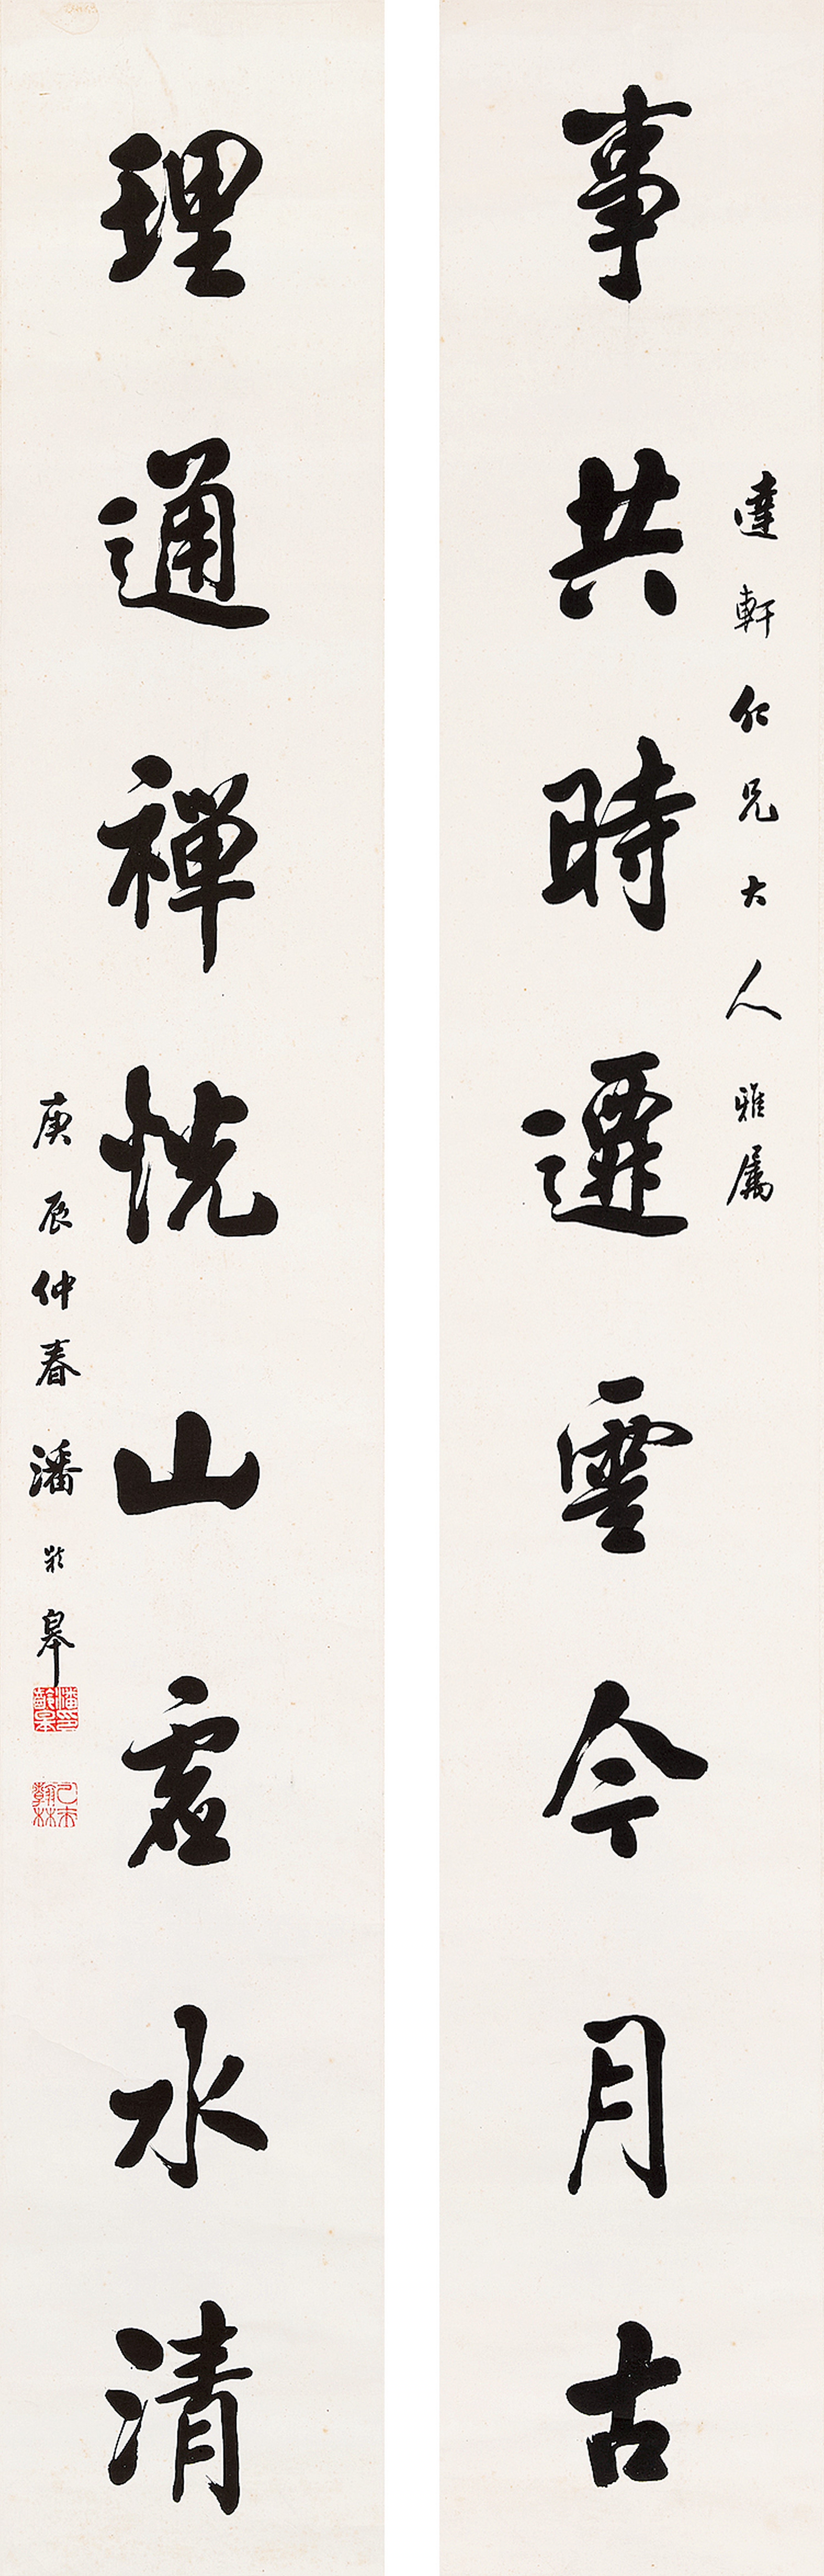 達軒仁兄大人雅属
事共時遷雲今月古
理通禪恍山虛水清
庚辰仲春潘齡皋
潘印齡皋
乙未翰林